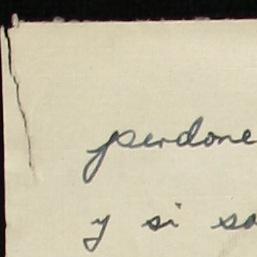 perdone
y si so